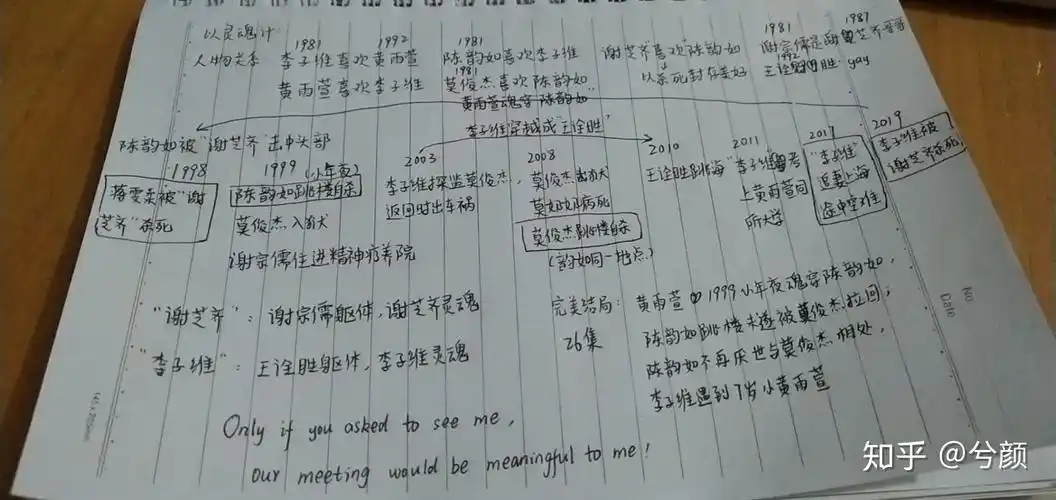 以灵魂计
1981 1992 1981 1981 1987
人物关系 李子维喜欢黄雨萱 陈韵如喜欢李子维 谢芝齐"喜欢"陈韵如 谢宗儒是谢芝齐哥哥
1981 1992
黄雨萱喜欢李子维 莫俊杰喜欢陈韵如 以杀死封存美好 王诠胜 gay
黄雨萱魂穿陈韵如
李子维穿越成"王诠胜"
陈韵如被"谢芝齐"击中头部
1998 1999 (小年夜) 2003 2008 2010 2011 2017 2019
蒋雯柔被"谢芝齐"杀死
陈韵如跳楼自杀
莫俊杰入狱
谢宗儒住进精神疗养院
李子维探监莫俊杰,
返回时出车祸
莫俊杰出狱
莫奶奶病死
莫俊杰跳楼自杀
(韵如同一地点)
王诠胜跳海
"李子维"考
上黄雨萱同
所大学
"李子维"
追妻上海
途中空难
李子维被
谢芝齐杀死
"谢芝齐":谢宗儒躯体,谢芝齐灵魂
"李子维":王诠胜躯体,李子维灵魂
完美结局:黄雨萱 1999小年夜魂穿陈韵如,
26集 陈韵如跳楼未遂被莫俊杰拉回,
陈韵如不再厌世与莫俊杰相处,
李子维遇到7岁小黄雨萱
Only if you asked to see me,
our meeting would be meaningful to me!
No
Date
知乎 @兮颜